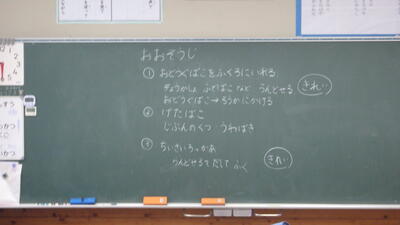 おおそうじ
① おどうぐばこをふくろにいれる
きょうかしょ ふでばこ など らんどせる
きれい
おどうぐばこ→ろうかにかける
② げたばこ
じぶんのくつ うわばき
③ ちいさいろっかあ
らんどせるをだして ふく
きれい